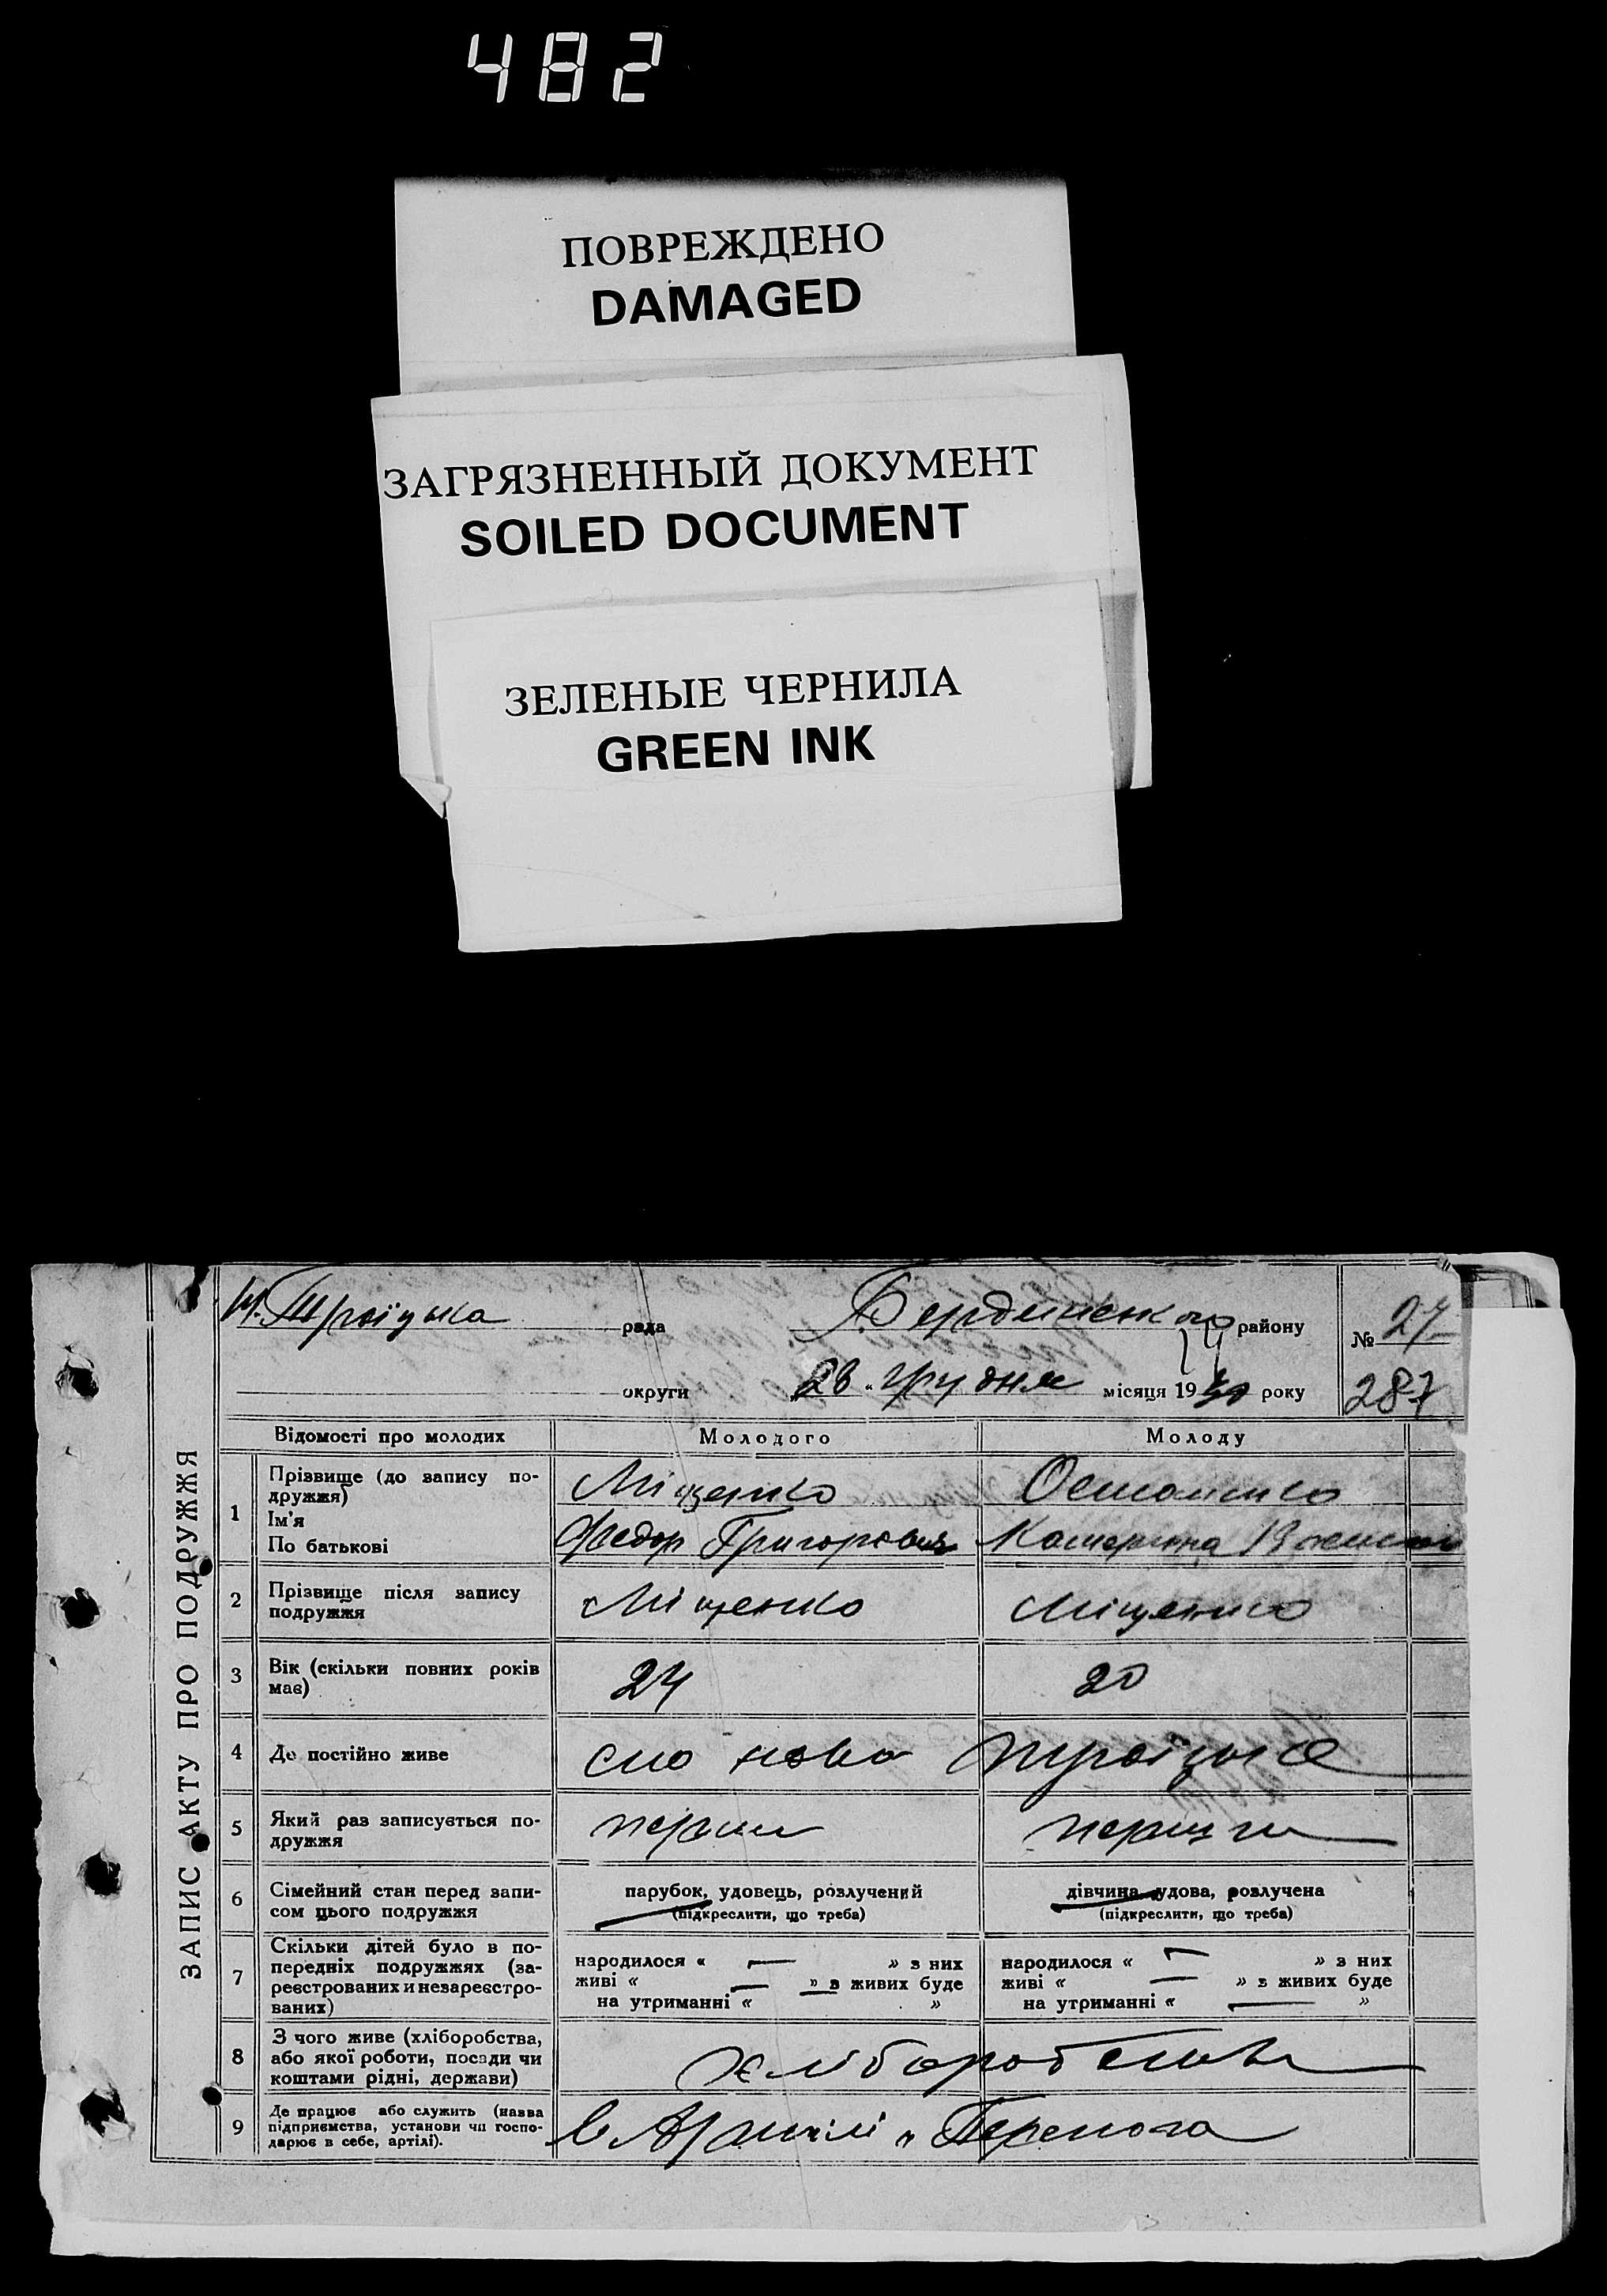 482
ПОВРЕЖДЕНО
DAMAGED
ЗАГРЯЗНЕННЫЙ ДОКУМЕНТ
SOILED DOCUMENT
ЗЕЛЕНЫЕ ЧЕРНИЛА
GREEN INK
ЗАПИС АКТУ ПРО ПОДРУЖЖЯ
Н. Троїцька рада Бердянського району № 27
округи „28 „ грудня місяця 19 року 287
Відомості про молодих Молодого Молоду
1 Прізвище (до запису подружжя) Міщенко
Ім'я
По батькові Федор Григорович Катерина
2 Прізвище після запису подружжя Міщенко Міщенко
3 Вік (скільки повних років має) 24 20
4 Де постійно живе село ново троїцьке
5 Який раз записується по-
дружжя перший
6 Сімейний стан перед запи- парубок, удовець, розлучений дівчина, удова, розлучена
сом цього подружжя (підкреслити, що треба) (підкреслити, що треба)
7 Скільки дітей було в по-
передніх подружжях (за-
реєстрованих и незареєстро-
ваних)
народилося « — » з них
живі « — » з живих буде
на утриманні « »
народилося « — » з них
живі « — » з живих буде
на утриманні « — »
8 З чого живе (хліборобства,
або якої роботи, посади чи
коштами рідні, держави) хліборобства
9 Де працює або служить (назва
підприємства, установи чи госпо-
дарює в себе, артілі). в Артілі „ Перемога